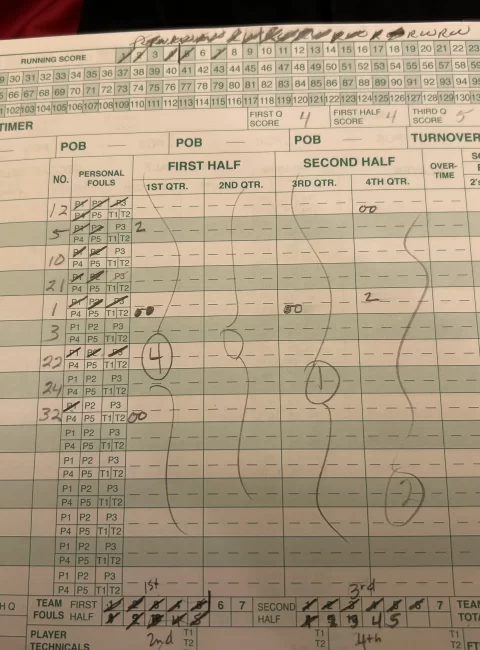 RUNNING SCORE 1 2 3 4 5 6 7 8 9 10 11 12 13 14 15 16 17 18 19 20 21 22 23
29 30 31 32 33 34 35 36 37 38 39 40 41 42 43 44 45 46 47 48 49 50 51 52 53 54 55 56 57 58 59
65 66 67 68 69 70 71 72 73 74 75 76 77 78 79 80 81 82 83 84 85 86 87 88 89 90 91 92 93 94 95
102 103 104 105 106 107 108 109 110 111 112 113 114 115 116 117 118 119 120 121 122 123 124 125 126 127 128 129 130
TIMER FIRST Q SCORE 4 FIRST HALF SCORE 4 THIRD Q SCORE 5
POB POB POB TURNOVER
NO. PERSONAL FOULS FIRST HALF SECOND HALF OVER-TIME
1ST QTR. 2ND QTR. 3RD QTR. 4TH QTR. 2's
12 P1 P2 P3 00
P4 P5 T1 T2
5 P1 P2 P3 2
P4 P5 T1 T2
10 P1 P2 P3
P4 P5 T1 T2
21 P1 P2 P3
P4 P5 T1 T2
1 P1 P2 P3 00 00 2
P4 P5 T1 T2
3 P1 P2 P3
P4 P5 T1 T2
22 P1 P2 P3 4
P4 P5 T1 T2
24 P1 P2 P3 1
P4 P5 T1 T2
32 P1 P2 P3 00
P4 P5 T1 T2
P1 P2 P3
P4 P5 T1 T2
P1 P2 P3
P4 P5 T1 T2
P1 P2 P3 2
P4 P5 T1 T2
P1 P2 P3
P4 P5 T1 T2
P1 P2 P3
P4 P5 T1 T2
P1 P2 P3
P4 P5 T1 T2
1st 3rd
H Q TEAM FOULS FIRST HALF 1 2 3 4 5 6 7 SECOND HALF 1 2 3 4 5 6 7 TEAM
1 2 3 4 5 1 2 3 4 5
2nd 4th
PLAYER TECHNICALS T1 T2 T1 T2 T1 T2 FT